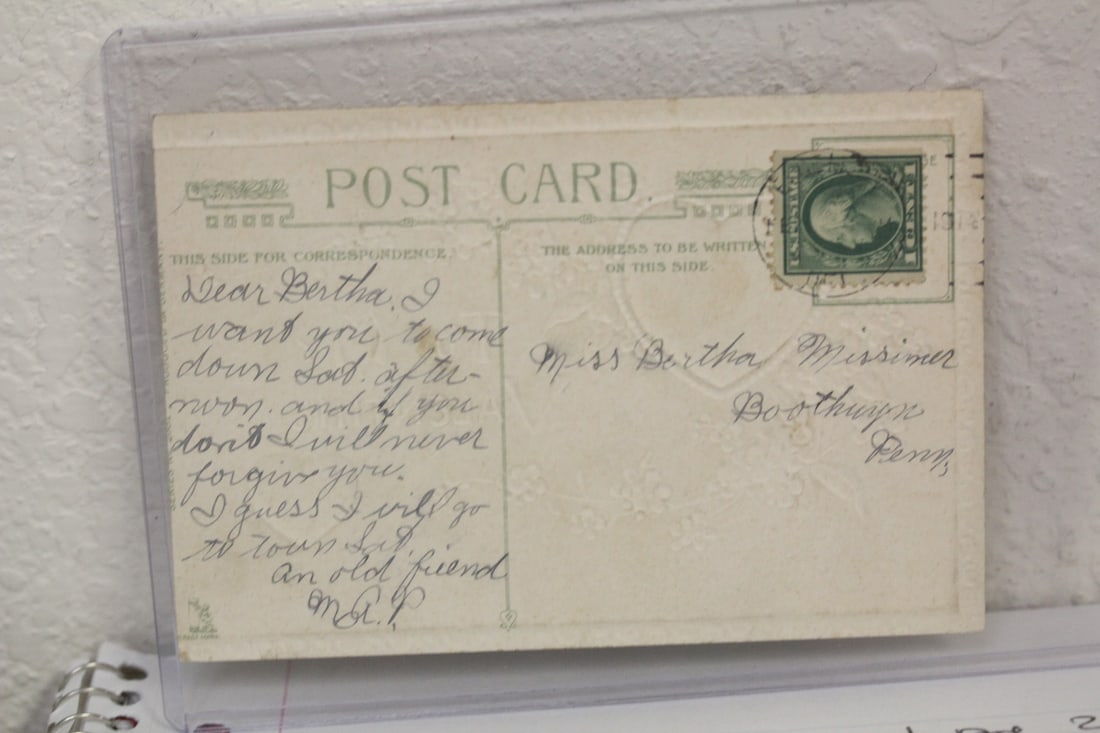 POST CARD.
THIS SIDE FOR CORRESPONDENCE.
THE ADDRESS TO BE WRITTEN
ON THIS SIDE.
Dear Bertha. I
want you to come
down Sat. after-
noon. and if you
don't I will never
forgive you.
I guess I will go
to town Sat.
an old friend
M.A.P.
Miss Bertha Missimer
Boothwyn
Penn,